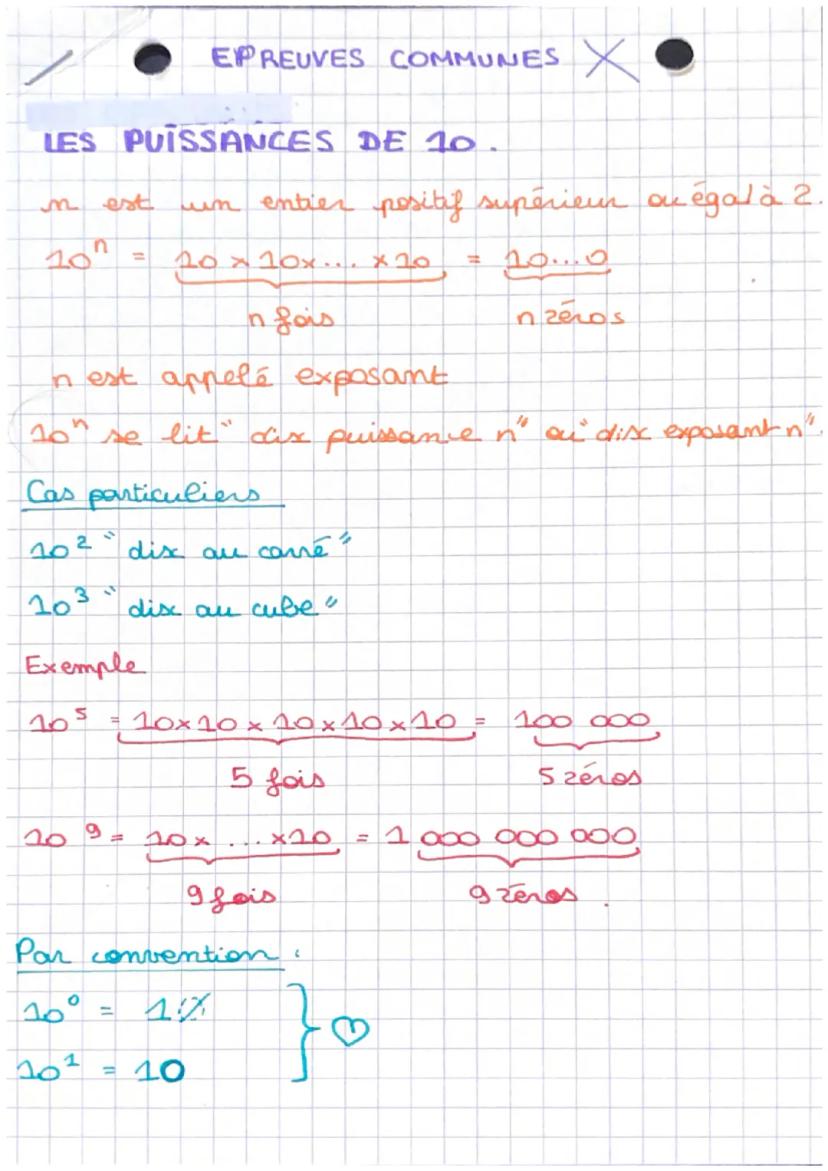 EPREUVES COMMUNES
LES PUISSANCES DE 10.
n est un entier positif supérieur ou égal à 2.
10ⁿ = 10 × 10 × .... × 10 = 10...0
n fois n zéros
n est appelé exposant
10ⁿ se lit "dix puissance n" ou "dix exposant n".
Cas particuliers
10² "dix au carré"
10³ "dix au cube"
Exemple
10⁵ = 10 × 10 × 10 × 10 × 10 = 100 000
5 fois 5 zéros
10⁹ = 10 × ... × 10 = 1 000 000 000
9 fois 9 zéros.
Par convention :
10⁰ = 1
10¹ = 10